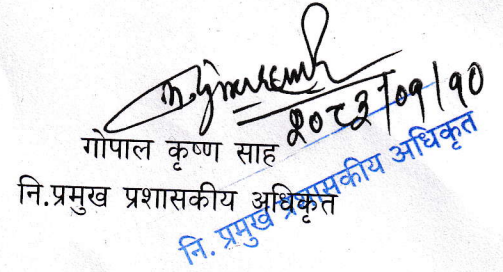 २०८३/०१/१०
गोपाल कृष्ण साह
नि.प्रमुख प्रशासकीय अधिकृत
नि. प्रमुख प्रशासकीय अधिकृत